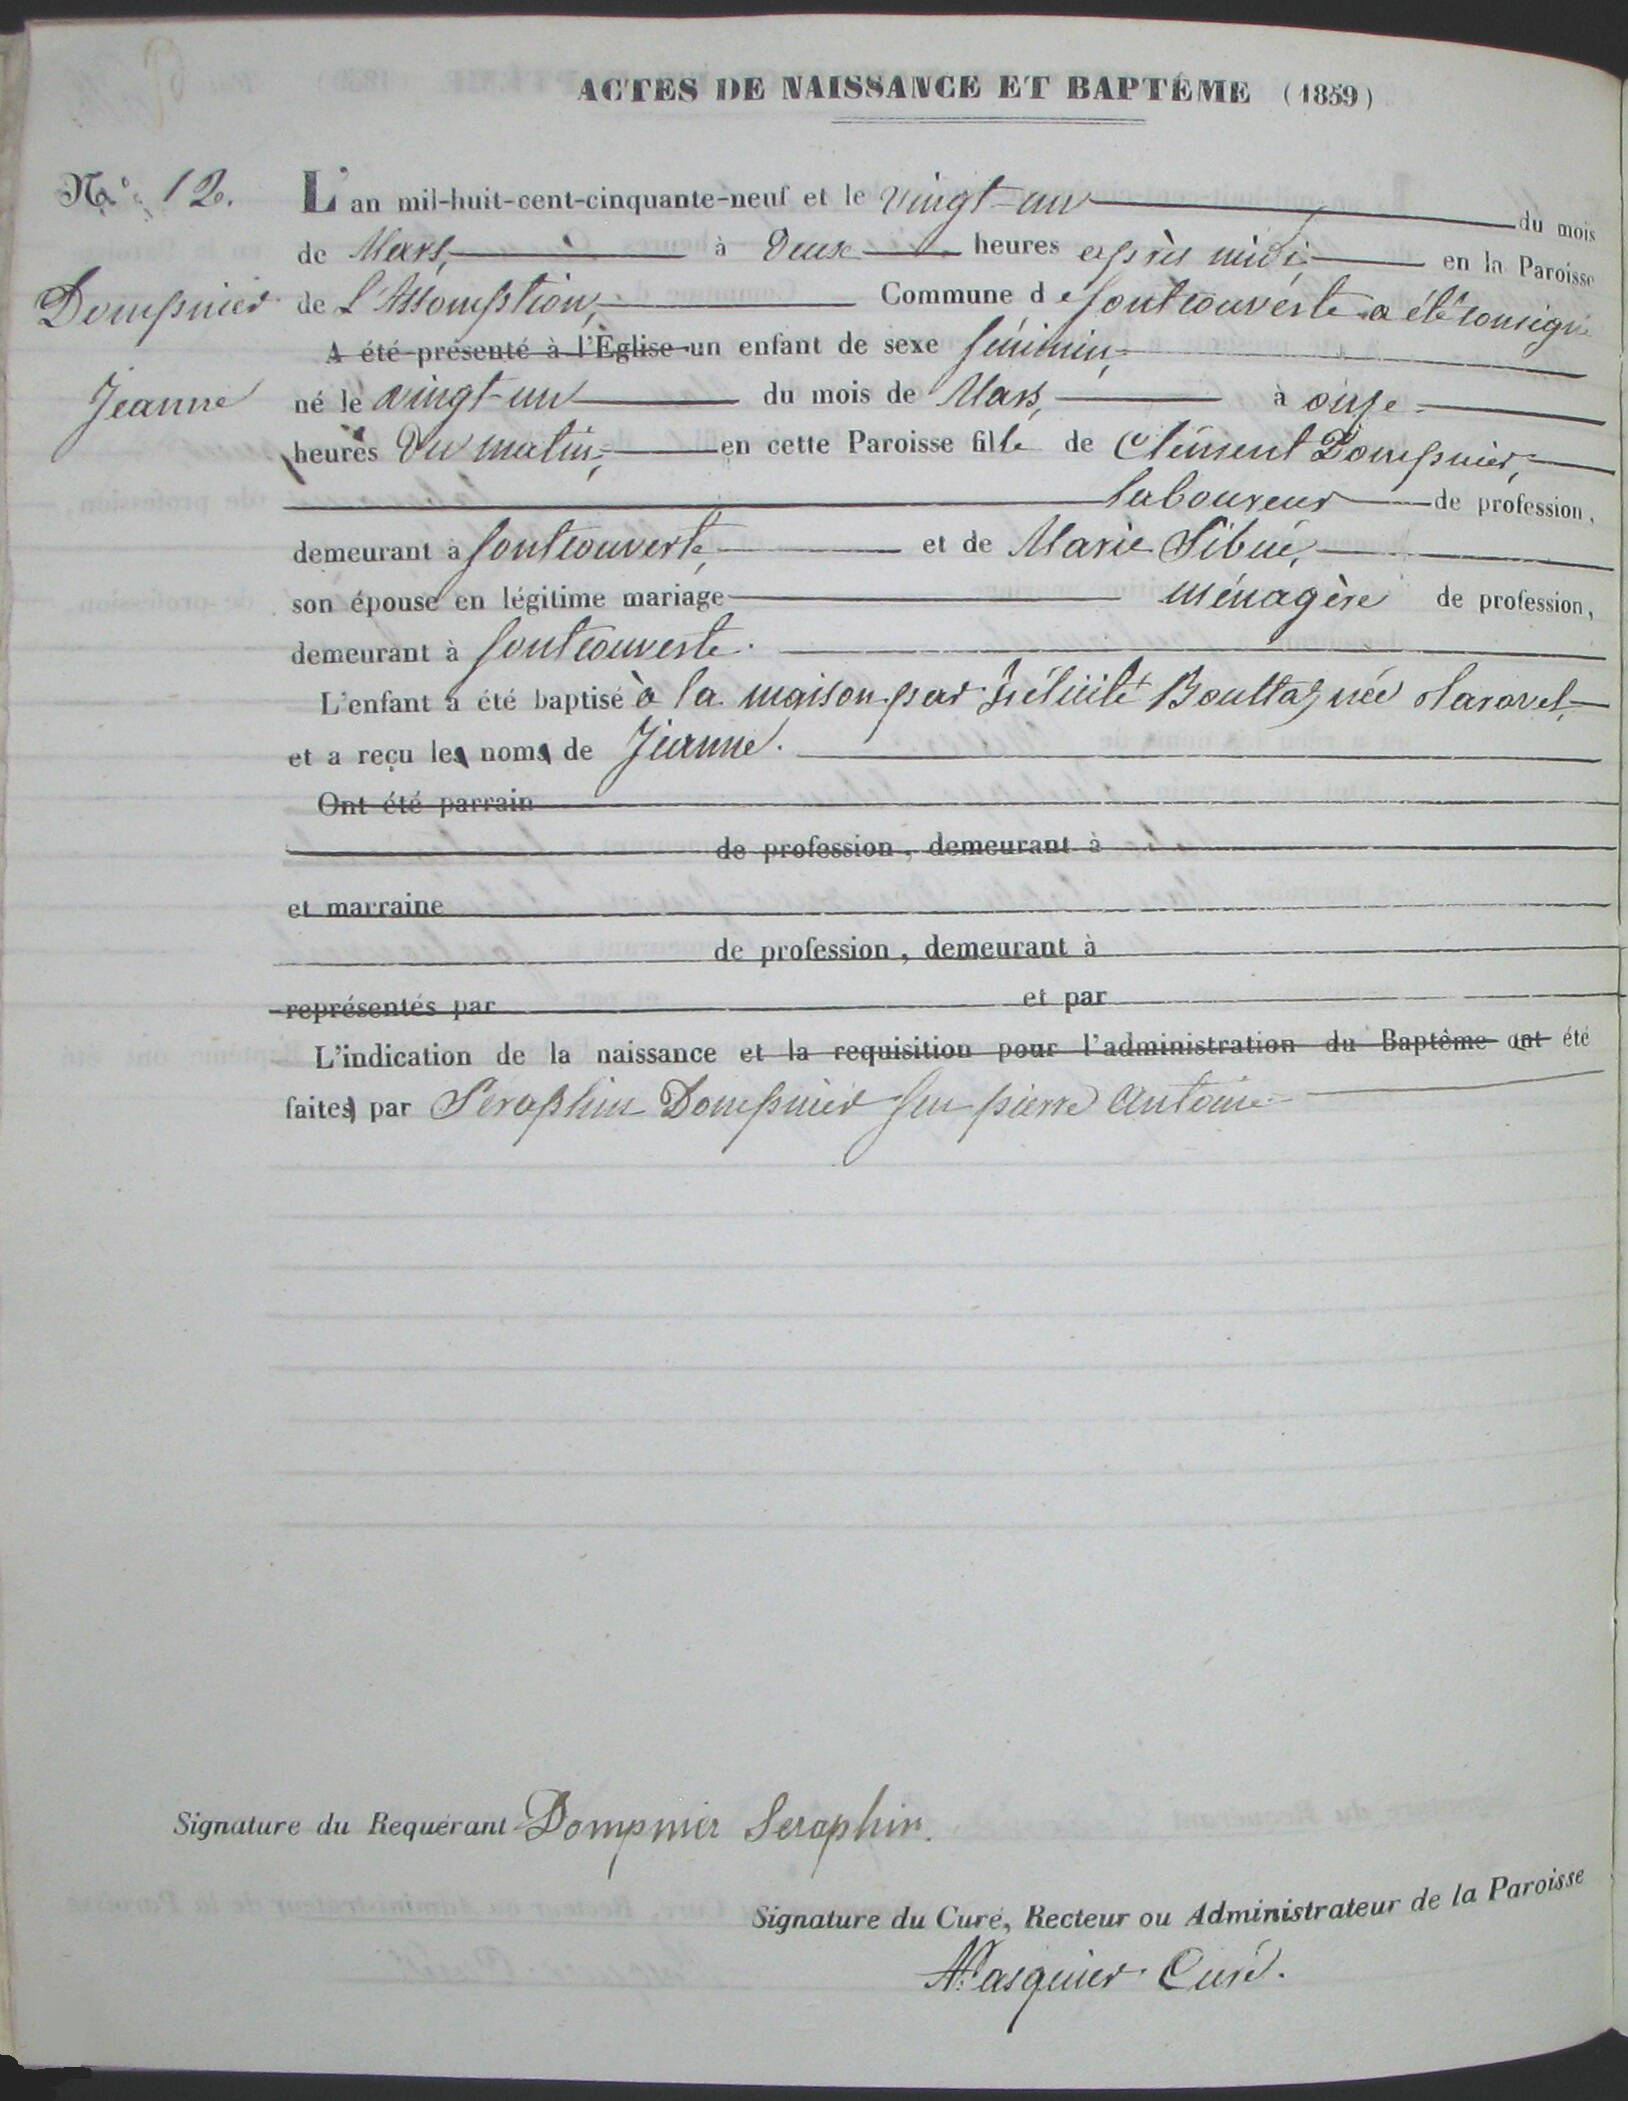 ACTES DE NAISSANCE ET BAPTÊME (1859)
N.° 12.
L'an mil-huit-cent-cinquante-neuf et le vingt-un du mois
de Mars, à Deux heures après midi, en la Paroisse
Dompnier
de L'Assomption, Commune de fontcouverte a été consigné
A été présenté à l'Église un enfant de sexe féminin,
Jeanne
né le vingt-un du mois de Mars, à onze
heures du matin, en cette Paroisse fille de Clément Dompnier,
laboureur de profession,
demeurant à fontcouverte, et de Marie Sibué,
son épouse en légitime mariage ménagère de profession,
demeurant à fontcouverte.
L'enfant a été baptisé à la maison par Félicité Bouttaz née
et a reçu les noms de Jeanne.
Ont été parrain
de profession, demeurant à
et marraine
de profession, demeurant à
représentés par et par
L'indication de la naissance et la requisition pour l'administration du Baptême ont été
faites par Seraphin Dompnier feu pierre Antoine
Signature du Requérant Dompnier Seraphin.
Signature du Curé, Recteur ou Administrateur de la Paroisse
Pasquier Curé.